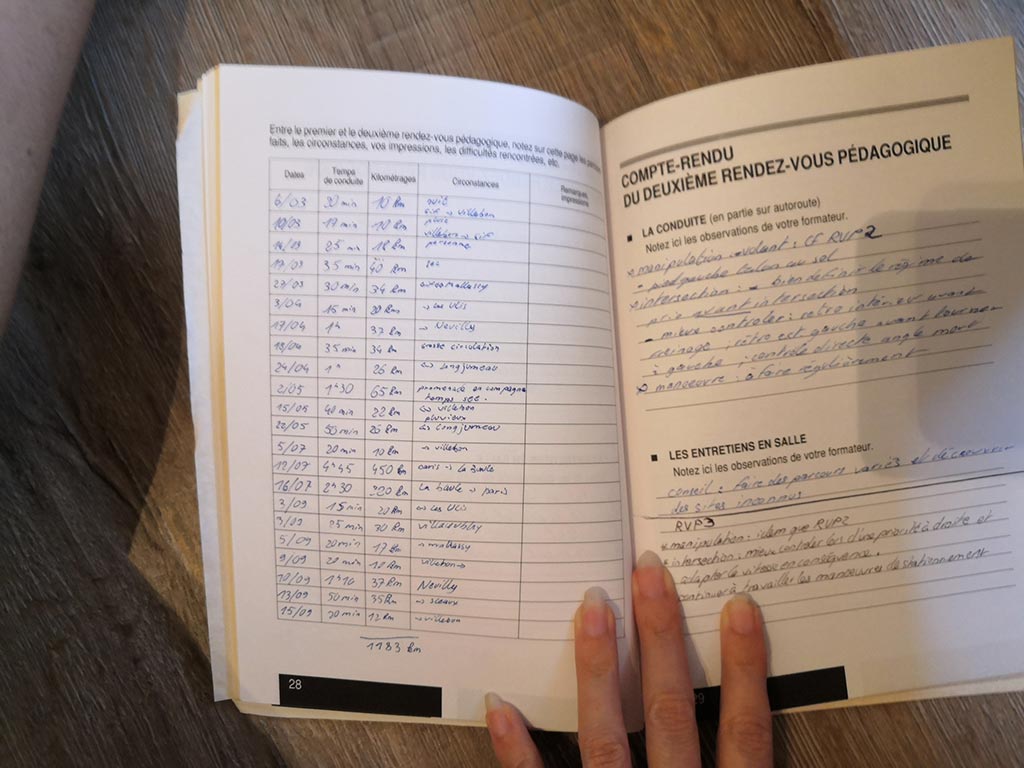 Entre le premier et le deuxième rendez-vous pédagogique, notez sur cette page les
faits, les circonstances, vos impressions, les difficultés rencontrées, etc.
Dates Temps de conduite Kilométrages Circonstances Remarques impressions
6/03 10 km nuit
villebon
19 min 10 km pluie
villebon
25 min 18 km personne
35 min 40 km sec
30 min 34 km
3/04 15 min 20 km → les Ulis
17/04 1h 37 km → Neuilly
35 min 34 km grosse circulation
24/04 1h 26 km Longjumeau
2/05 1h30 65 km promenade en campagne
temps sec.
15/05 40 min 22 km villebon
pluvieux
22/05 50 min 26 km Longjumeau
5/07 20 min 10 km → villebon
12/07 4h45 450 km paris → la baule
16/07 2h30 220 km La baule → paris
15 min 20 km les Ulis
3/09 25 min 30 km
5/09 20 min 17 km → massy
9/09 18 km villebon →
10/09 1h10 37 km Neuilly
13/09 50 min 35 km → sceaux
15/09 12 km → villebon
1183 km
28
COMPTE-RENDU
DU DEUXIÈME RENDEZ-VOUS PÉDAGOGIQUE
LA CONDUITE (en partie sur autoroute)
Notez ici les observations de votre formateur.
* manipulation - volant : CF RVP2
- pied gauche talon au sol
* intersection : - bien définir le régime de
prio avant intersection
- mieux controler : rétro intérieur avant
freinage ; rétro ext gauche avant tourner
à gauche ; controle directe angle mort
* manoeuvre : à faire régulièrement
LES ENTRETIENS EN SALLE
Notez ici les observations de votre formateur.
conseil : faire des parcours variés et découvrir
des sites inconnus
RVP3
* manipulation : idem que RVP2
* intersection : mieux controler lors d'une priorité à droite et
adapter le vitesse en conséquence.
continuer à travailler les manoeuvres de stationnement
29